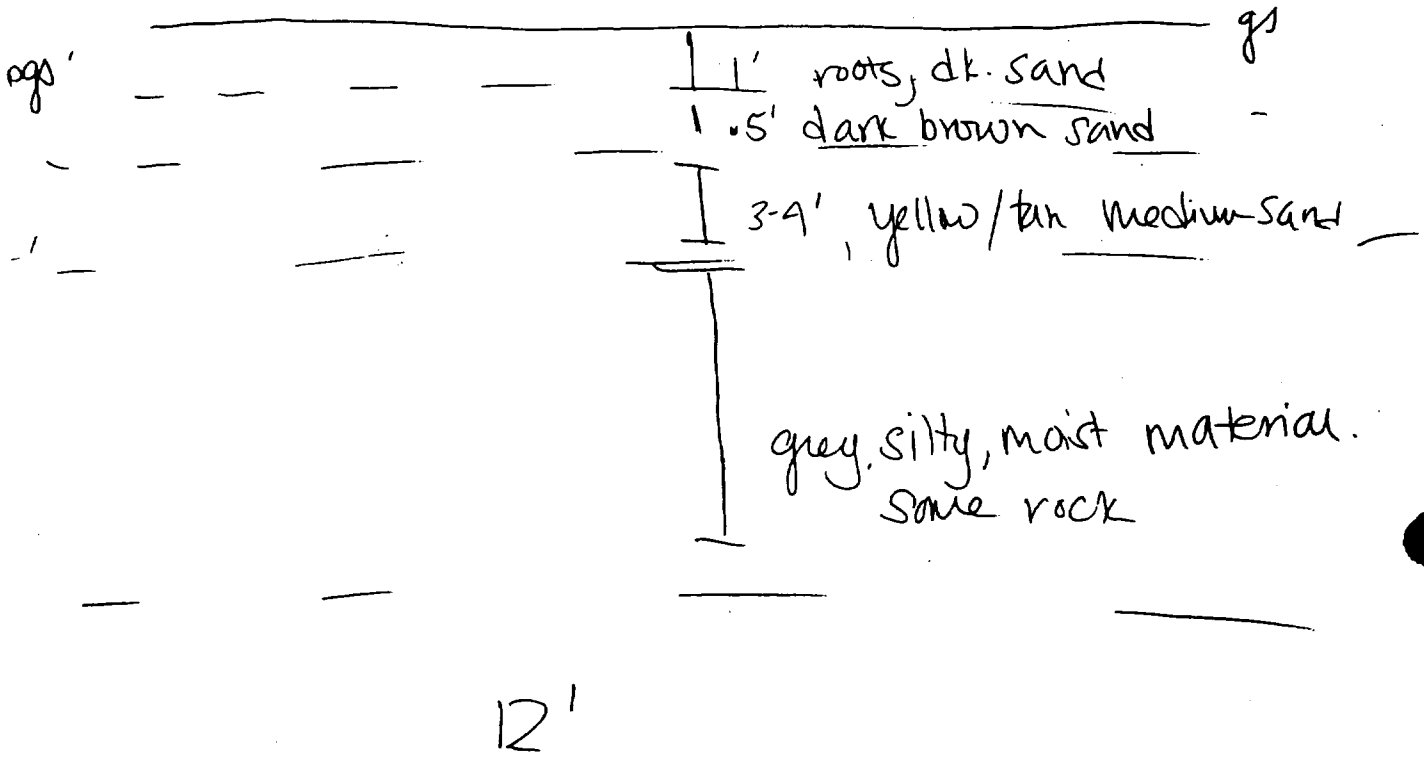 gs
1' roots, dk. sand
.5' dark brown sand
3-4', yellow/tan medium sand
grey, silty, moist material.
some rock
12'